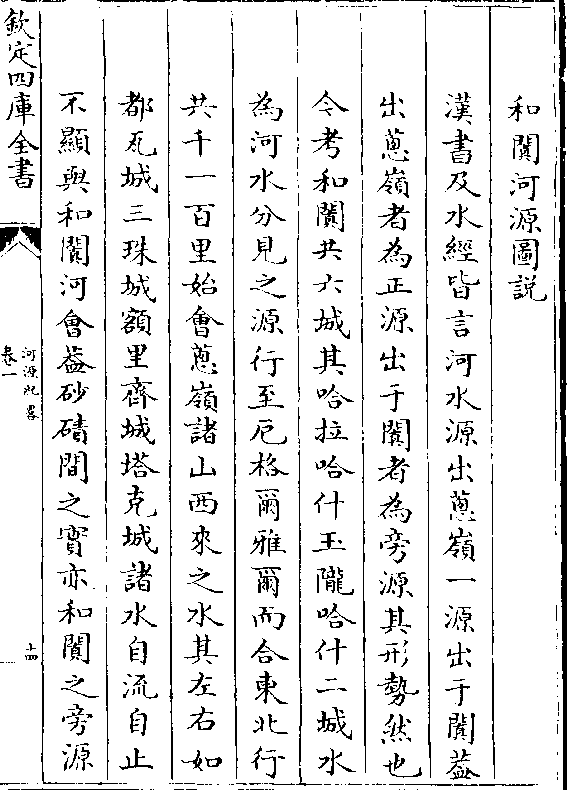 和闐河源圖説
漢書及水經皆言河水源出蔥嶺一源出于闐蓋
出蔥嶺者為正源出于闐者為旁源其形勢然也
今考和闐共六城其哈拉哈什玉隴哈什二城水
為河水分見之源行至厄格爾雅爾而合東北行
共千一百里始會蔥嶺諸山西來之水其左右如
都瓦城三珠城額里齊城塔克城諸水自流自止
不顯與和闐河會葢砂磧間之實亦和闐之旁源
欽定四庫全書
河源紀畧
卷一
十四